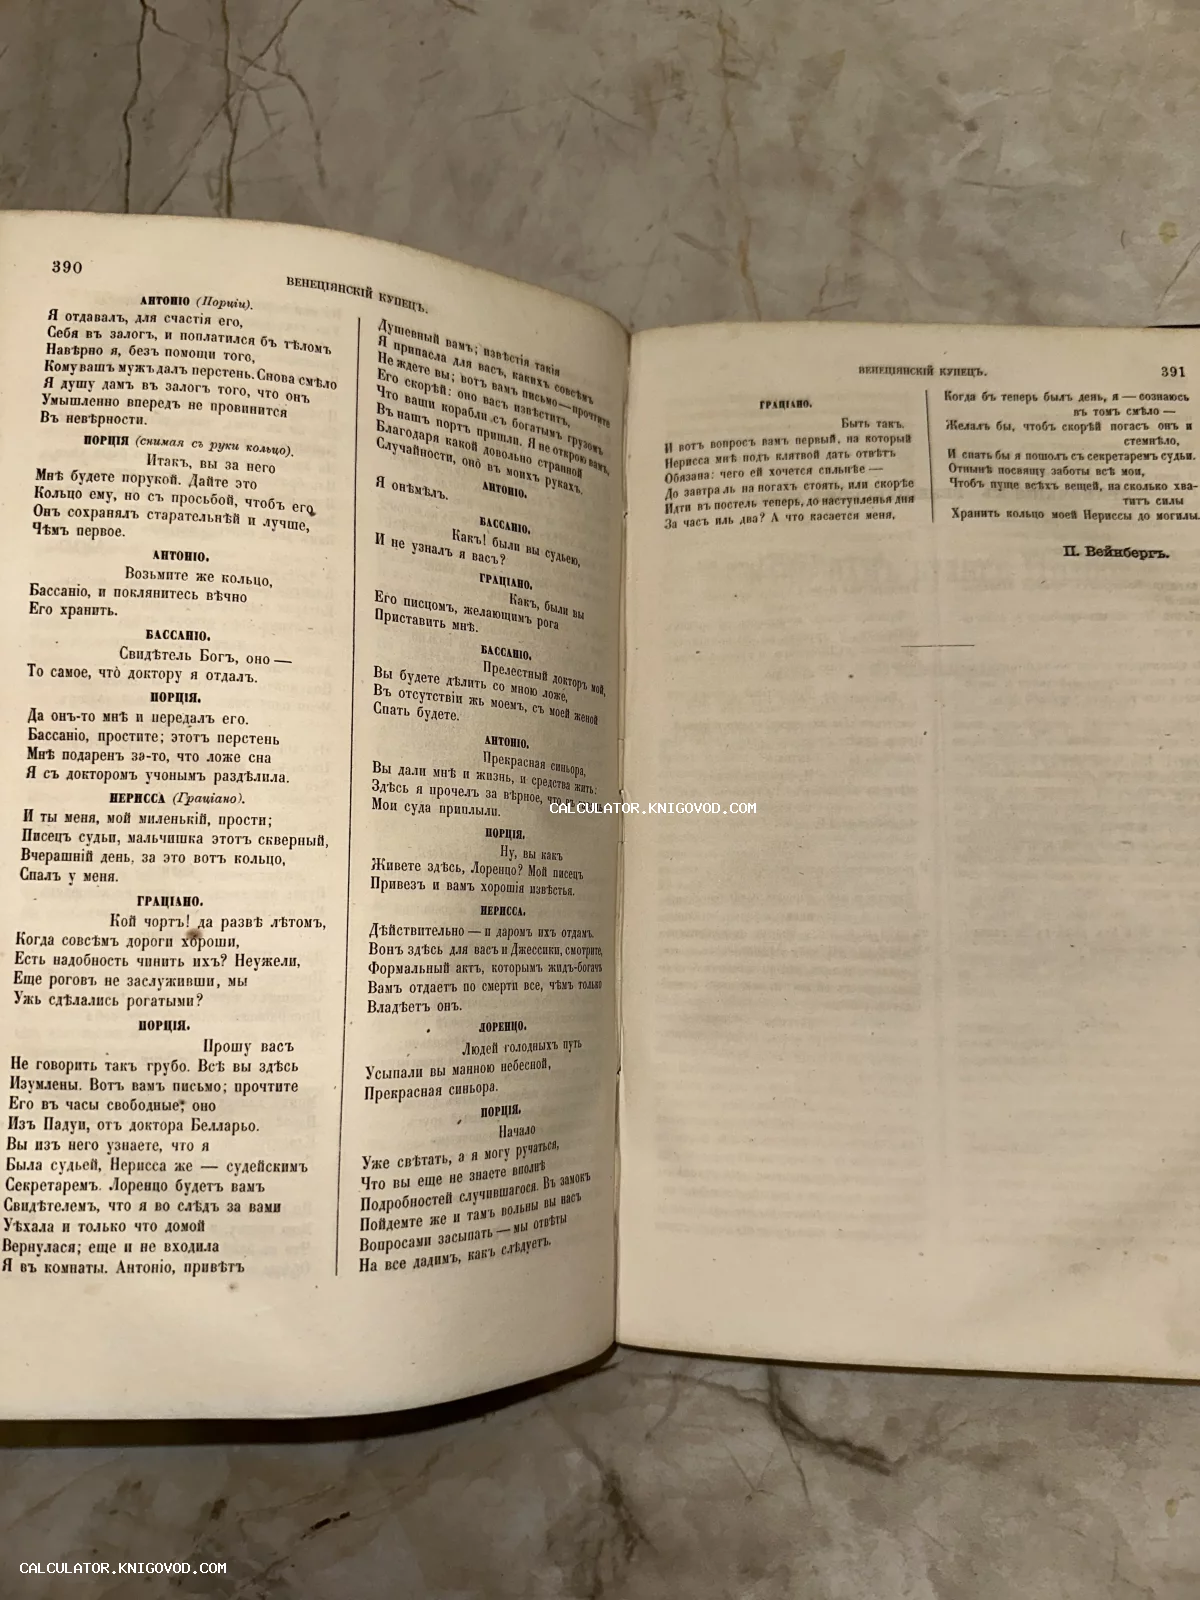 390
ВЕНЕЦІЯНСКІЙ КУПЕЦЪ.
АНТОНІО (Порціи).
Я отдавалъ, для счастія его,
Себя въ залогъ, и поплатился бъ тѣломъ
Навѣрно я, безъ помощи того,
Кому вашъ мужъ далъ перстень. Снова смѣло
Я душу дамъ въ залогъ того, что онъ
Умышленно впередъ не провинится
Въ невѣрности.
ПОРЦІЯ (снимая съ руки кольцо).
Итакъ, вы за него
Мнѣ будете порукой. Дайте это
Кольцо ему, но съ просьбой, чтобъ его
Онъ сохранялъ старательнѣй и лучше,
Чѣмъ первое.
АНТОНІО.
Возьмите же кольцо,
Бассаніо, и поклянитесь вѣчно
Его хранить.
БАССАНІО.
Свидѣтель Богъ, оно —
То самое, что̀ доктору я отдалъ.
ПОРЦІЯ.
Да онъ-то мнѣ и передалъ его.
Бассаніо, простите; этотъ перстень
Мнѣ подаренъ за-то, что ложе сна
Я съ докторомъ учонымъ раздѣлила.
НЕРИССА (Граціано).
И ты меня, мой миленькій, прости;
Писецъ судьи, мальчишка этотъ скверный,
Вчерашній день, за это вотъ кольцо,
Спалъ у меня.
ГРАЦІАНО.
Кой чортъ! да развѣ лѣтомъ,
Когда совсѣмъ дороги хороши,
Есть надобность чинить ихъ? Неужели,
Еще роговъ не заслуживши, мы
Ужь сдѣлались рогатыми?
ПОРЦІЯ.
Прошу васъ
Не говорить такъ грубо. Всѣ вы здѣсь
Изумлены. Вотъ вамъ письмо; прочтите
Его въ часы свободные; оно
Изъ Падуи, отъ доктора Белларьо.
Вы изъ него узнаете, что я
Была судьей, Нерисса же — судейскимъ
Секретаремъ. Лоренцо будетъ вамъ
Свидѣтелемъ, что я во слѣдъ за вами
Уѣхала и только что домой
Вернулася; еще и не входила
Я въ комнаты. Антоніо, привѣтъ
Душевный вамъ; извѣстія такія
Я припасла для васъ, какихъ совсѣмъ
Не ждете вы; вотъ вамъ письмо — прочтите
Его скорѣй: оно васъ извѣститъ,
Что ваши корабли съ богатымъ грузомъ
Въ нашъ портъ пришли. Я не открою вамъ,
Благодаря какой довольно странной
Случайности, оно̀ въ моихъ рукахъ.
АНТОНІО.
Я онѣмѣлъ.
БАССАНІО.
Какъ! были вы судьею,
И не узналъ я васъ?
ГРАЦІАНО.
Какъ, были вы
Его писцомъ, желающимъ рога
Приставить мнѣ.
БАССАНІО.
Прелестный докторъ мой,
Вы будете дѣлить со мною ложе,
Въ отсутствіи жь моемъ, съ моей женой
Спать будете.
АНТОНІО.
Прекрасная синьора,
Вы дали мнѣ и жизнь, и средства жить:
Здѣсь я прочелъ за вѣрное, что въ
Мои суда приплыли.
ПОРЦІЯ.
Ну, вы какъ
Живете здѣсь, Лоренцо? Мой писецъ
Привезъ и вамъ хорошія извѣстья.
НЕРИССА.
Дѣйствительно — и даромъ ихъ отдамъ.
Вонъ здѣсь для васъ и Джессики, смотрите,
Формальный актъ, которымъ жидъ-богачъ
Вамъ отдаетъ по смерти все, чѣмъ только
Владѣетъ онъ.
ЛОРЕНЦО.
Людей голодныхъ путь
Усыпали вы манною небесной,
Прекрасная синьора.
ПОРЦІЯ.
Начало
Уже свѣтать, а я могу ручаться,
Что вы еще не знаете вполнѣ
Подробностей случившагося. Въ замокъ
Пойдемте же и тамъ вольны вы насъ
Вопросами засыпать — мы отвѣты
На все дадимъ, какъ слѣдуетъ.
ВЕНЕЦІЯНСКІЙ КУПЕЦЪ.
391
ГРАЦІАНО.
Быть такъ.
И вотъ вопросъ вамъ первый, на который
Нерисса мнѣ подъ клятвой дать отвѣтъ
Обязана: чего ей хочется сильнѣе —
До завтра ль на ногахъ стоять, или скорѣе
Идти въ постель теперь, до наступленья дня
За часъ иль два? А что касается меня,
Когда бъ теперь былъ день, я — сознаюсь
въ томъ смѣло —
Желалъ бы, чтобъ скорѣй погасъ онъ и
стемнѣло,
И спать бы я пошолъ съ секретаремъ судьи.
Отнынѣ посвящу заботы всѣ мои,
Чтобъ пуще всѣхъ вещей, на сколько хва-
титъ силы
Хранить кольцо моей Нериссы до могилы.
П. Вейнбергъ.
CALCULATOR.KNIGOVOD.COM
CALCULATOR.KNIGOVOD.COM